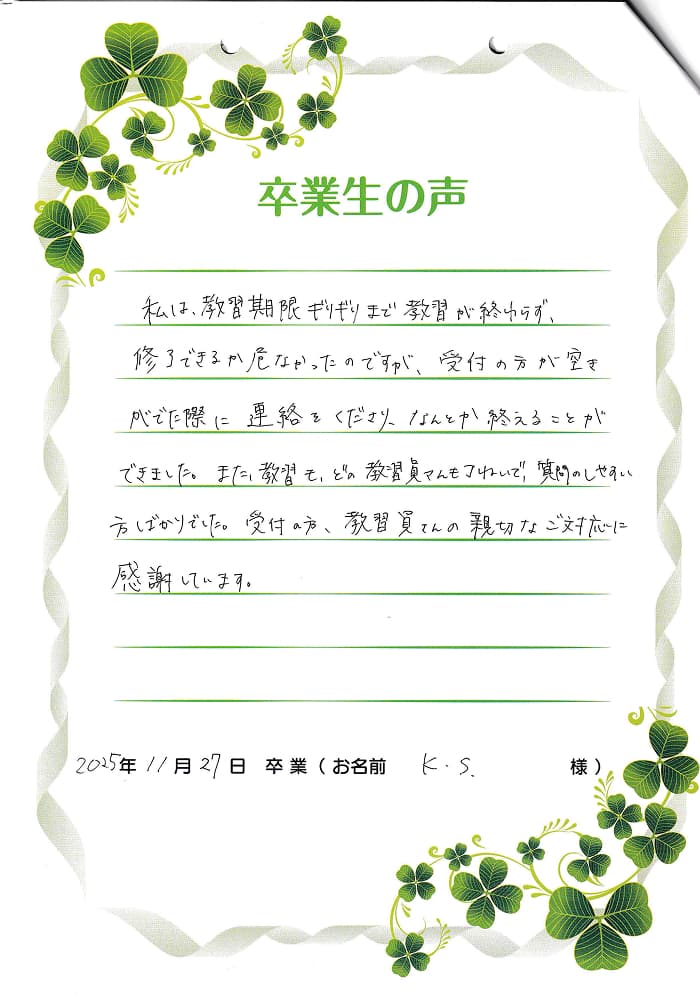 卒業生の声
私は、教習期限ギリギリまで教習が終わらず、
修了できるか危なかったのですが、受付の方が空き
がでた際に連絡をくださり、なんとか終えることが
できました。また、教習も、どの教習員さんも丁ねいで、質問のしやすい
方ばかりでした。受付の方、教習員さんの親切なご対応に
感謝しています。
2025年11月27日 卒業（お名前 K.S. 様）